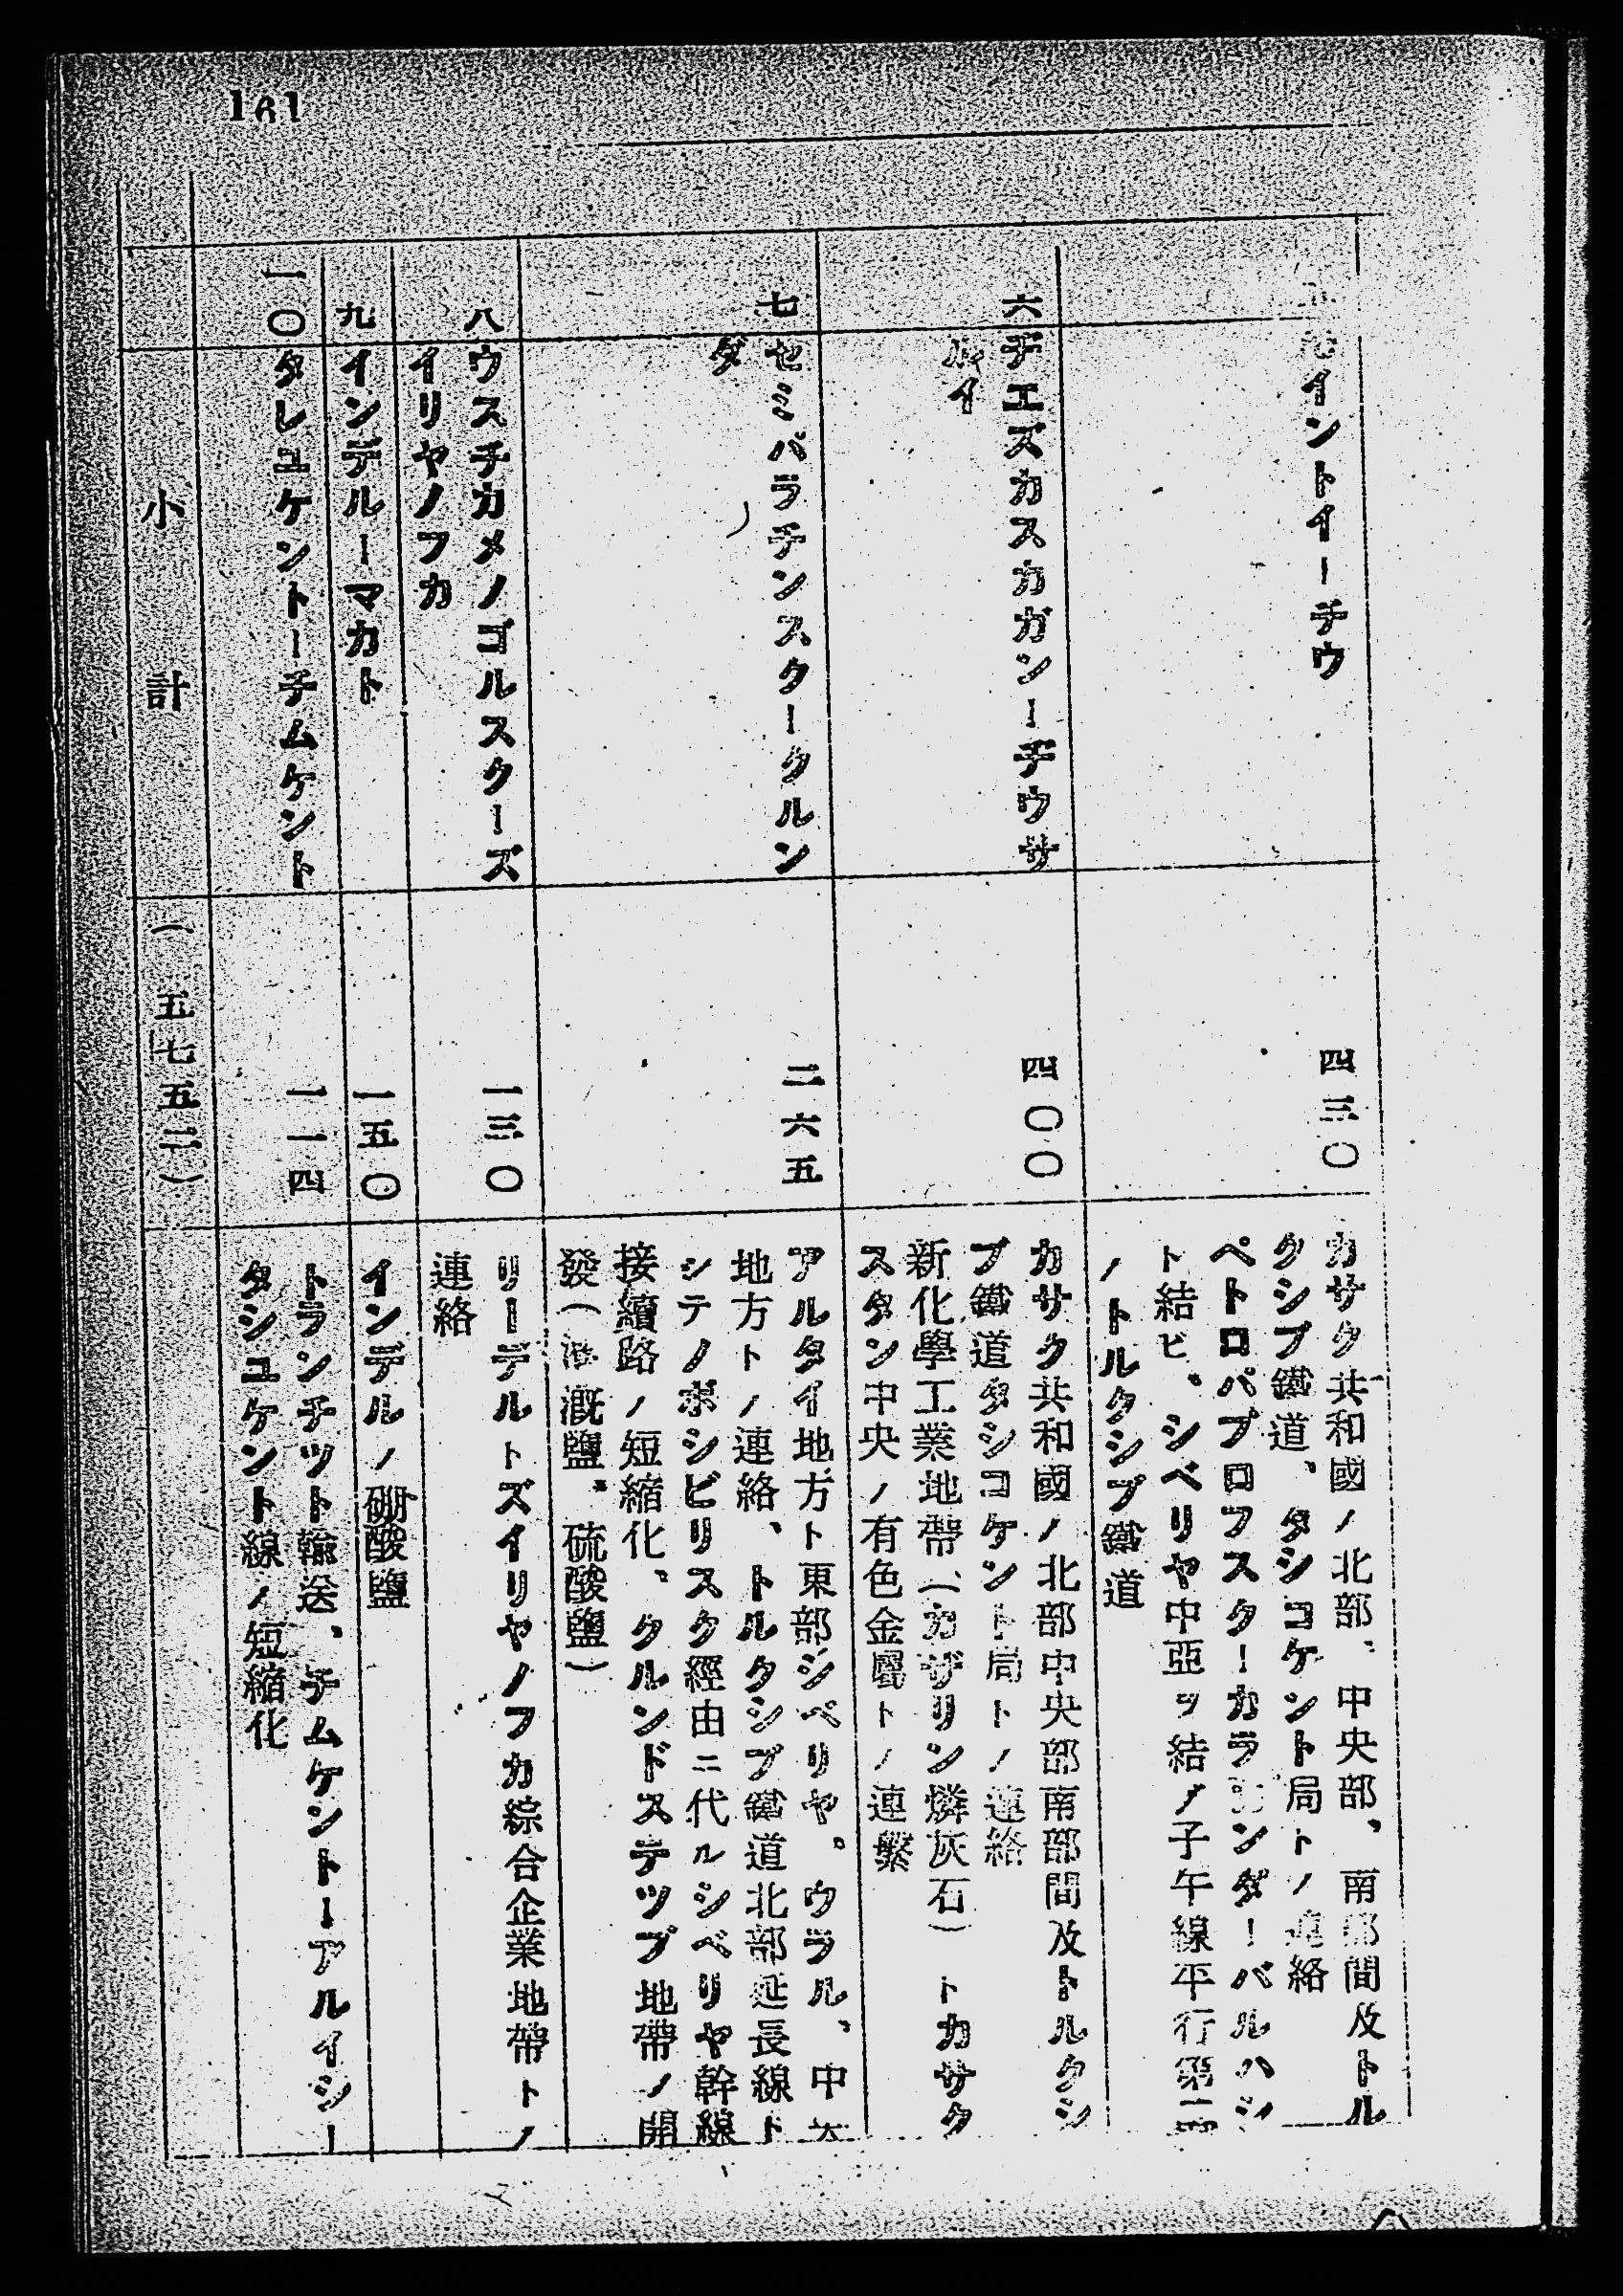 161
イントイーチウ
四三〇
カサク共和國ノ北部、中央部、南部間及トル
クシブ鐵道、タシコケント局トノ連絡
ペトロパブロフスターカラガンダーバルハシ
ト結ビ、シベリヤ中亞ヲ結ブ子午線平行第二
ノトルクシブ鐵道
六
チエズカスカガンーチウサ
ルイ
四〇〇
カサク共和國ノ北部中央部南部間及トルクシ
ブ鐵道タシコケント局トノ連絡
新化學工業地帶(カザリン燐灰石)トカサク
スタン中央ノ有色金屬トノ連繫
七
セミパラチンスクークルン
ダ
二六五
アルタイ地方ト東部シベリヤ、ウラル、中央
地方トノ連絡、トルクシブ鐵道北部延長線ト
シテノボシビリスク經由ニ代ルシベリヤ幹線
接續路ノ短縮化、クルンドステツプ地帶ノ開
發(漑鹽、硫酸鹽)
八
ウスチカメノゴルスクーズ
イリヤノフカ
一三〇
リーデルトズイリヤノフカ綜合企業地帶トノ
連絡
九
インデルーマカト
一五〇
インデルノ硼酸鹽
一〇
タレユケントーチムケント
一一四
トランチツト輸送、チムケントーアルイシー
タシユケント線ノ短縮化
小計
(一五七五二)